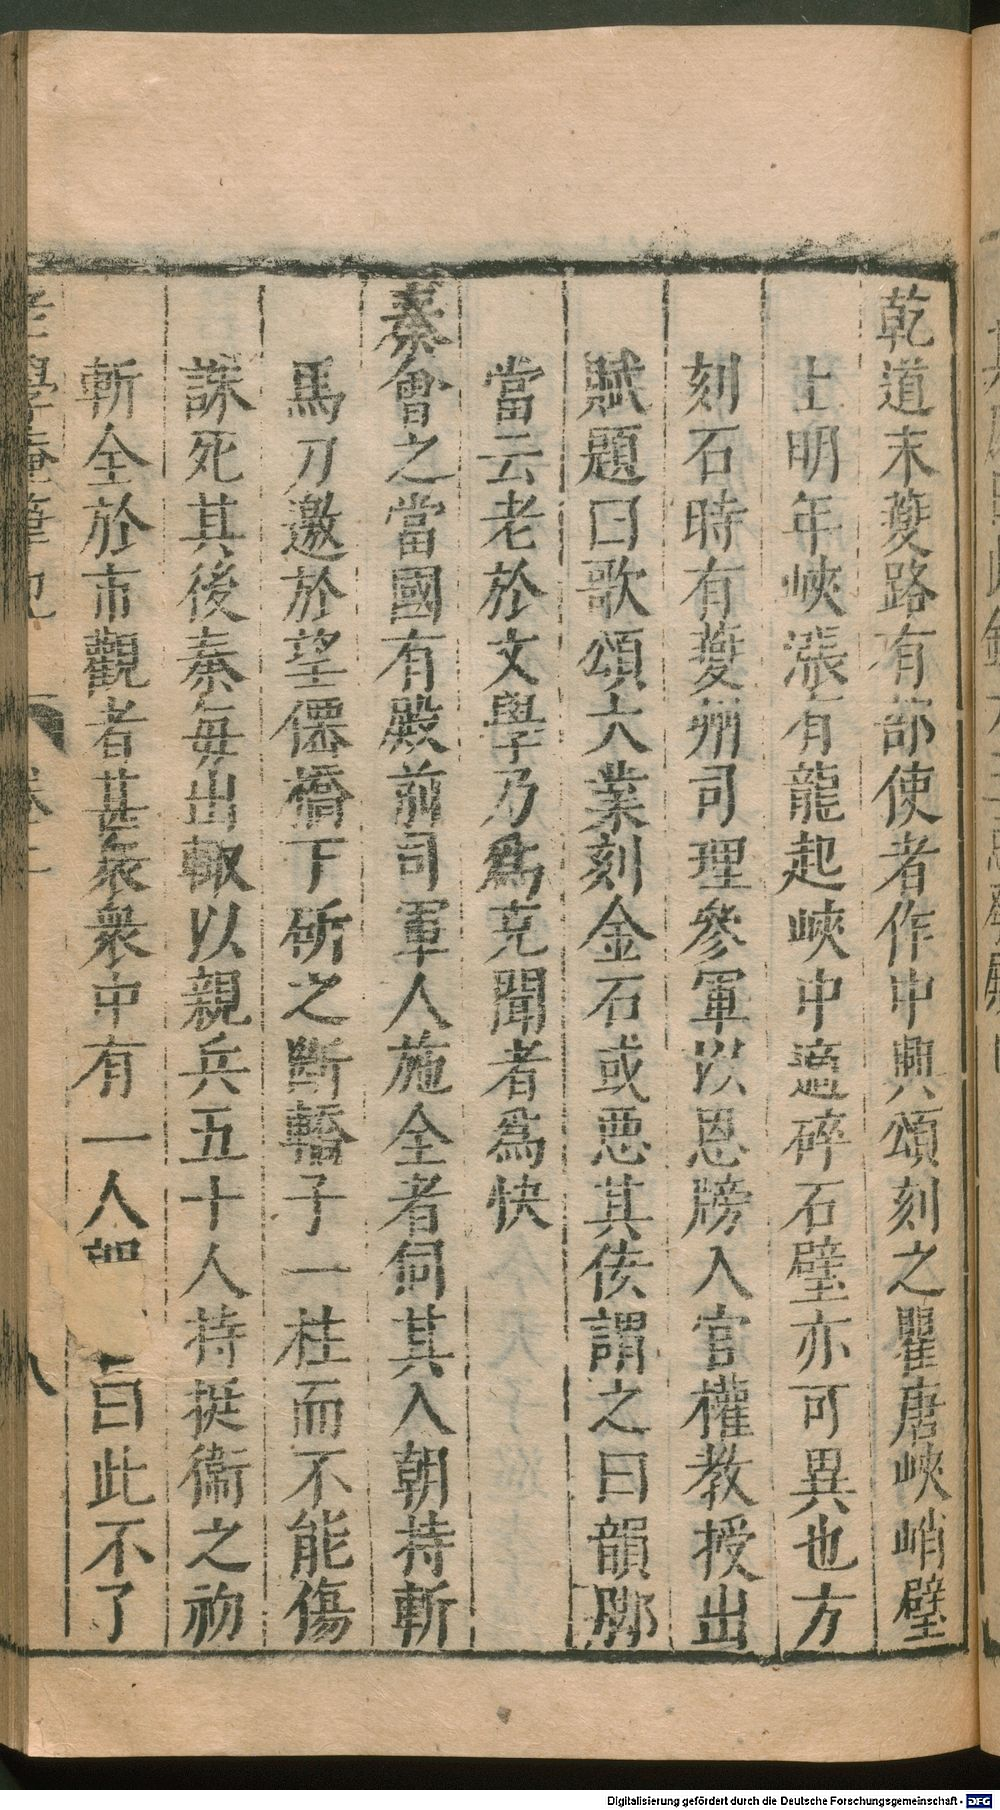 乾道末夔路有部使者作中興頌刻之瞿唐峽峭壁
上明年峽漲有龍起峽中適碎石壁亦可異也方
刻石時有夔州司理參軍以恩牓入官權教授出
賦題曰歌頌大業刻金石或惡其佞謂之曰韻腳
當云老於文學乃為克聞者爲快
秦會之當國有殿前司軍人施全者伺其入朝持斬
馬刀邀於望僊橋下斫之斷轎子一柱而不能傷
誅死其後秦每出輙以親兵五十人持挺衞之初
斬全於市觀者甚衆衆中有一人 曰此不了
老學庵筆記 卷二 八
Digitalisierung gefördert durch die Deutsche Forschungsgemeinschaft - DFG